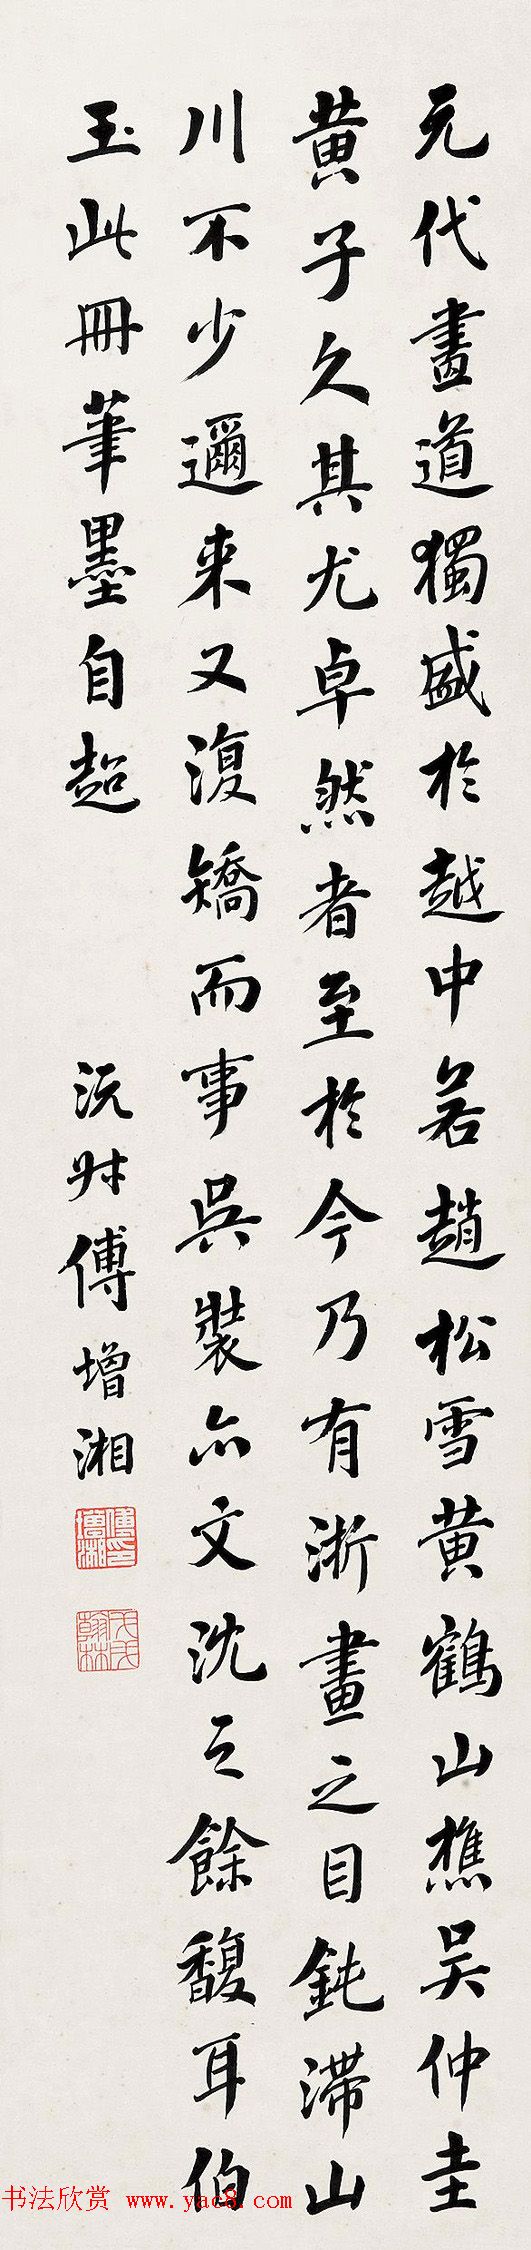 元代畫道獨盛於越中若趙松雪黄鶴山樵吴仲圭
黄子久其尤卓然者至於今乃有浙畫之目鈍滯山
川不少邇来又復矯而事吳裝亦文沈之餘馥耳伯
玉此冊筆墨自超
沅叔傅增湘
傅增湘印
戊戌翰林
书法欣赏 www.yac8.com